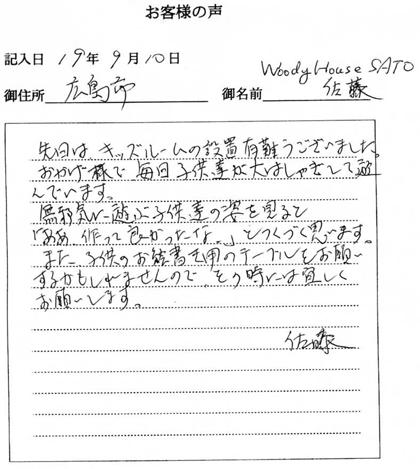 お客様の声
記入日 19年9月10日
Woody House SATO
御住所 広島市 御名前 佐藤
先日は キッズルームの設置有難うございました。
おかげ様で 毎日子供達が大はしゃぎして遊
んでいます。
無邪気に遊ぶ子供達の姿を見ると
「ああ 作って良かったな。」とつくづく思います。
また 子供のお絵書き用のテーブルをお願い
するかもしれませんので その時には宜しく
お願いします。
佐藤